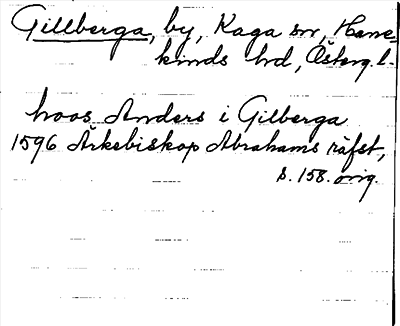 Gillberga, by, Kaga sn, Hane-
kinds hd, Österg. l.
hoos Anders i Gilberga
1596 Ärkebiskop Abrahams räfst,
s. 158. orig.